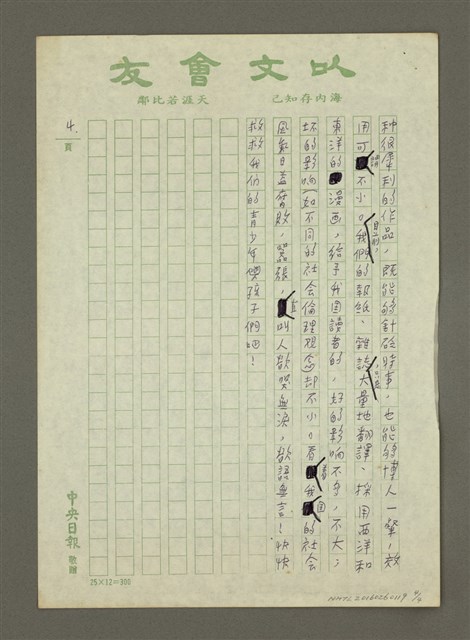 以文會友
海內存知己 天涯若比鄰
種很犀利的作品，既能够針砭時事，也能够博人一粲，效
用可謂不小。目前，我們的報紙、雜誌，大量地翻譯、採用西洋和
東洋的漫畫，給予我國讀者的，好的影响不多，不大；
坏的影响（如不同的社会倫理观念却不小。看看我國的社会
風氣日益腐敗，囂張，真叫人欲哭無淚，欲語無言！快快
救救我们的青少年們孩子們吧！
4.頁
中央日報 敬贈
25×12=300
NMTL20160260119 4/4